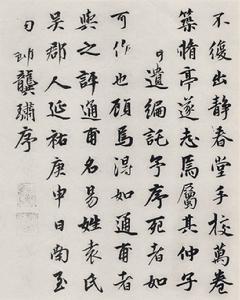 不復出静春堂手校萬卷
築脩亭遂志焉屬其仲子
遺編託予序死者如
可作也顧焉得如通甫者
與之評通甫名易姓袁氏
吴郡人延祐庚申日南至
龔璛序